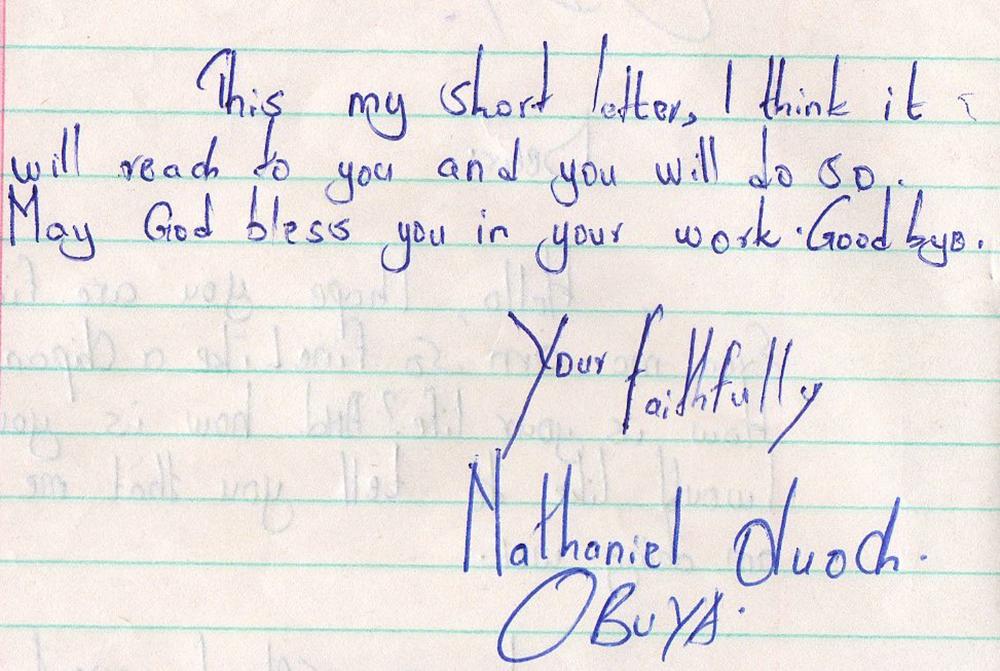 This my short letter, I think it
will reach to you and you will do so.
May God bless you in your work. Good bye.
Your faithfully
Nathaniel Oluoch.
OBUYA.